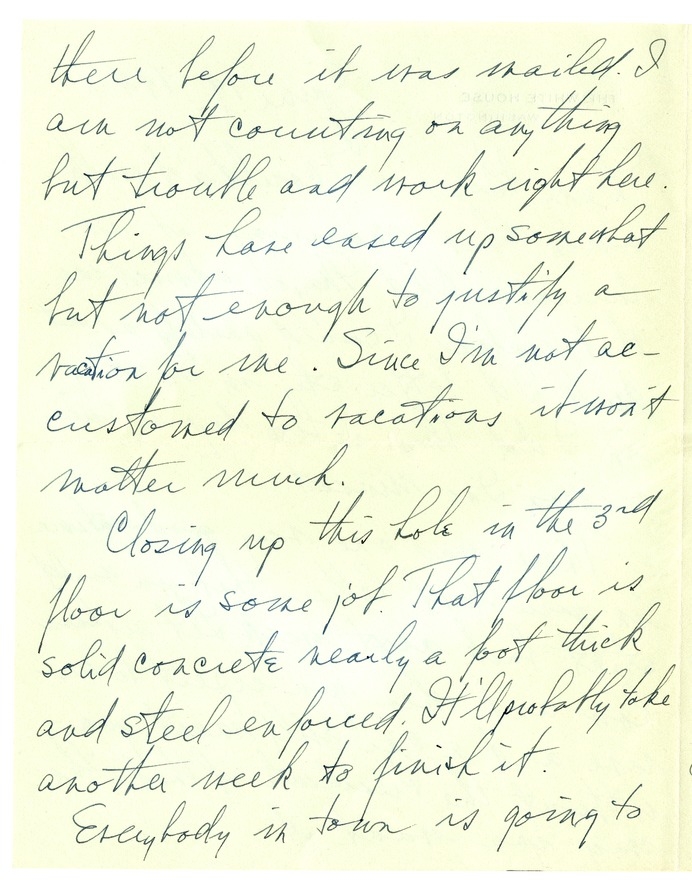 there before it was mailed. I
am not counting on anything
but trouble and work right here.
Things have eased up somewhat
but not enough to justify a
vacation for me. Since I'm not ac-
customed to vacations it won't
matter much.
Closing up this hole in the 3rd
floor is some job. That floor is
solid concrete nearly a foot thick
and steel enforced. It'll probably take
another week to finish it.
Everybody in town is going to